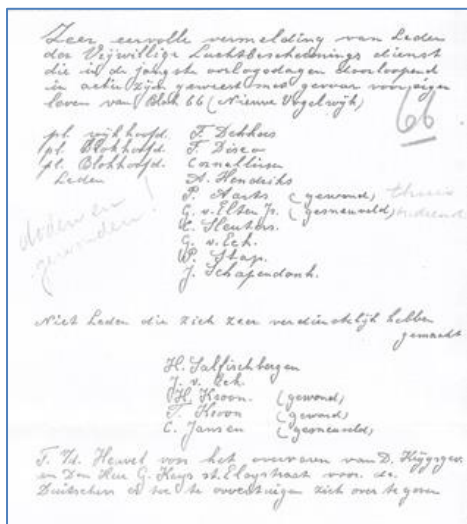 Zeer eervolle vermelding van Leden
der Vrijwillige Luchtbeschermings dienst
die in de jongste oorlogsdagen doorloopend
in actie zijn geweest met gevaar voor eigen
leven van Blok 66 (Nieuwe Vogelwijk)
66
pl. wijkhoofd. F. Dekkers
pl. Blokhoofd. F. Disco
pl. Blokhoofd. Cornelissen
Leden A. Hendriks
P. Aarts (gewond) thuis
G. v. Elten Jr. (gesneuveld)
C. Sleutors.
G. v. Eck.
W. Stap.
J. Schapendonk.
doden en
gewonden!
Niet Leden die zich zeer verdienstelijk hebben
gemaakt
H. Salfischbergen
J. v. Eck.
H. Kroon. (gewond)
T. Kroon (gewond)
C. Jansen (gesneuveld)
F. v/d. Heuvel voor het overvaren van D. Krijgsgev.
en Den Heer G. Keys st. Eloystraat voor de
Duitschers te overtuigen zich over te geven